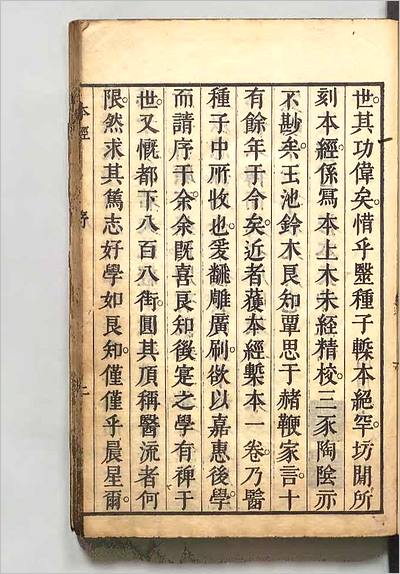 世。其功偉矣。惜乎毉種子槧本絕罕。坊閒所
刻本經。係寫本上木未經精校。三豕陶陰亦
不尠矣。玉池鈴木良知覃思于赭鞭家言十
有餘年于今矣。近者獲本經槧本一卷。乃毉
種子中所收也。爰翻雕廣刷。欲以嘉惠後學。
而請序于余。余既喜良知後寔之學有裨于
世。又慨都下八百八街。圓其頂稱醫流者何
限。然求其篤志好學如良知。僅僅乎晨星爾。
本經 序 二